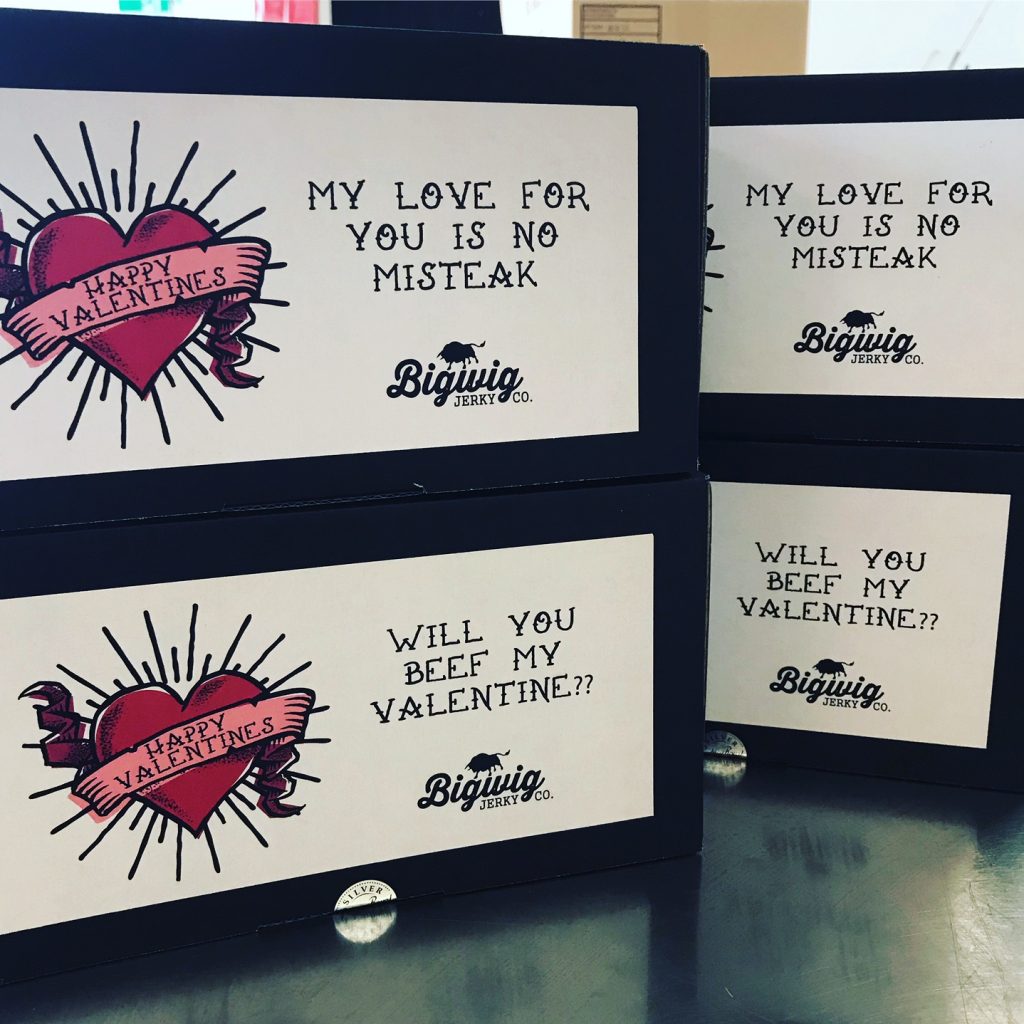 HAPPY
VALENTINES
MY LOVE FOR
YOU IS NO
MISTEAK
Bigwig
JERKY CO.
MY LOVE FOR
YOU IS NO
MISTEAK
Bigwig
JERKY CO.
HAPPY
VALENTINES
WILL YOU
BEEF MY
VALENTINE??
Bigwig
JERKY CO.
SILVER
WILL YOU
BEEF MY
VALENTINE??
Bigwig
JERKY CO.